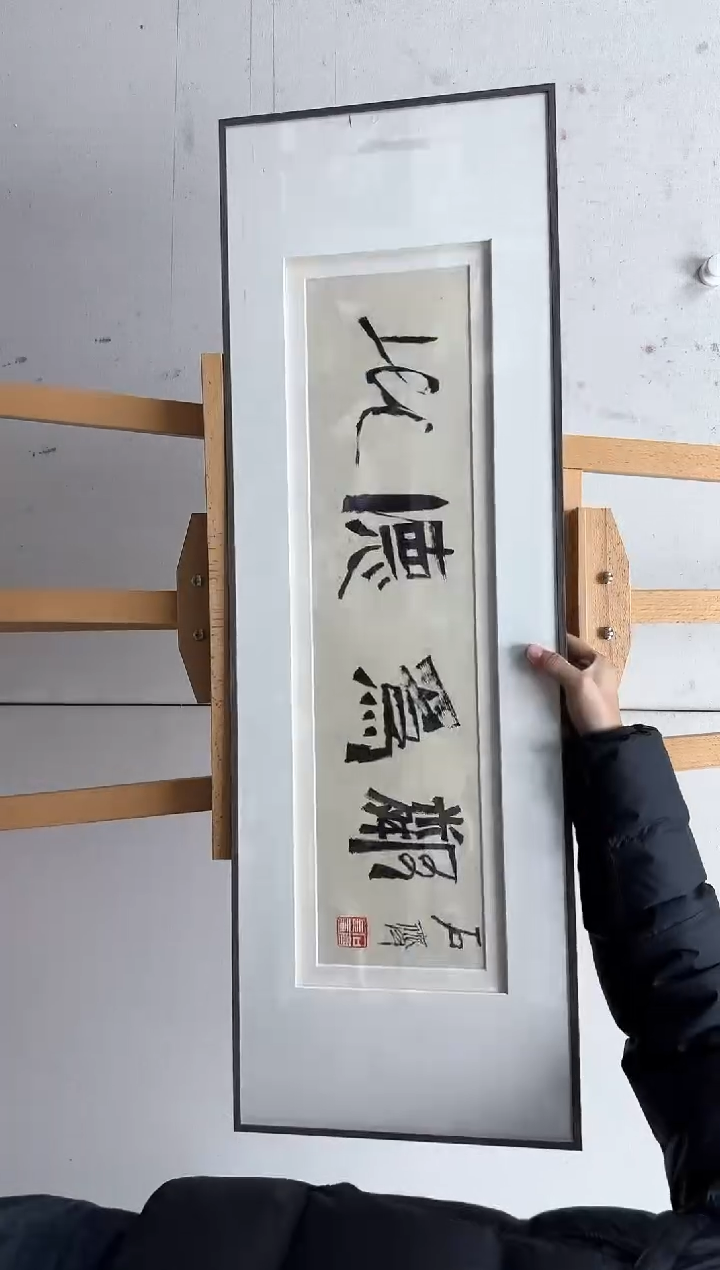 以德為鄰
石齊